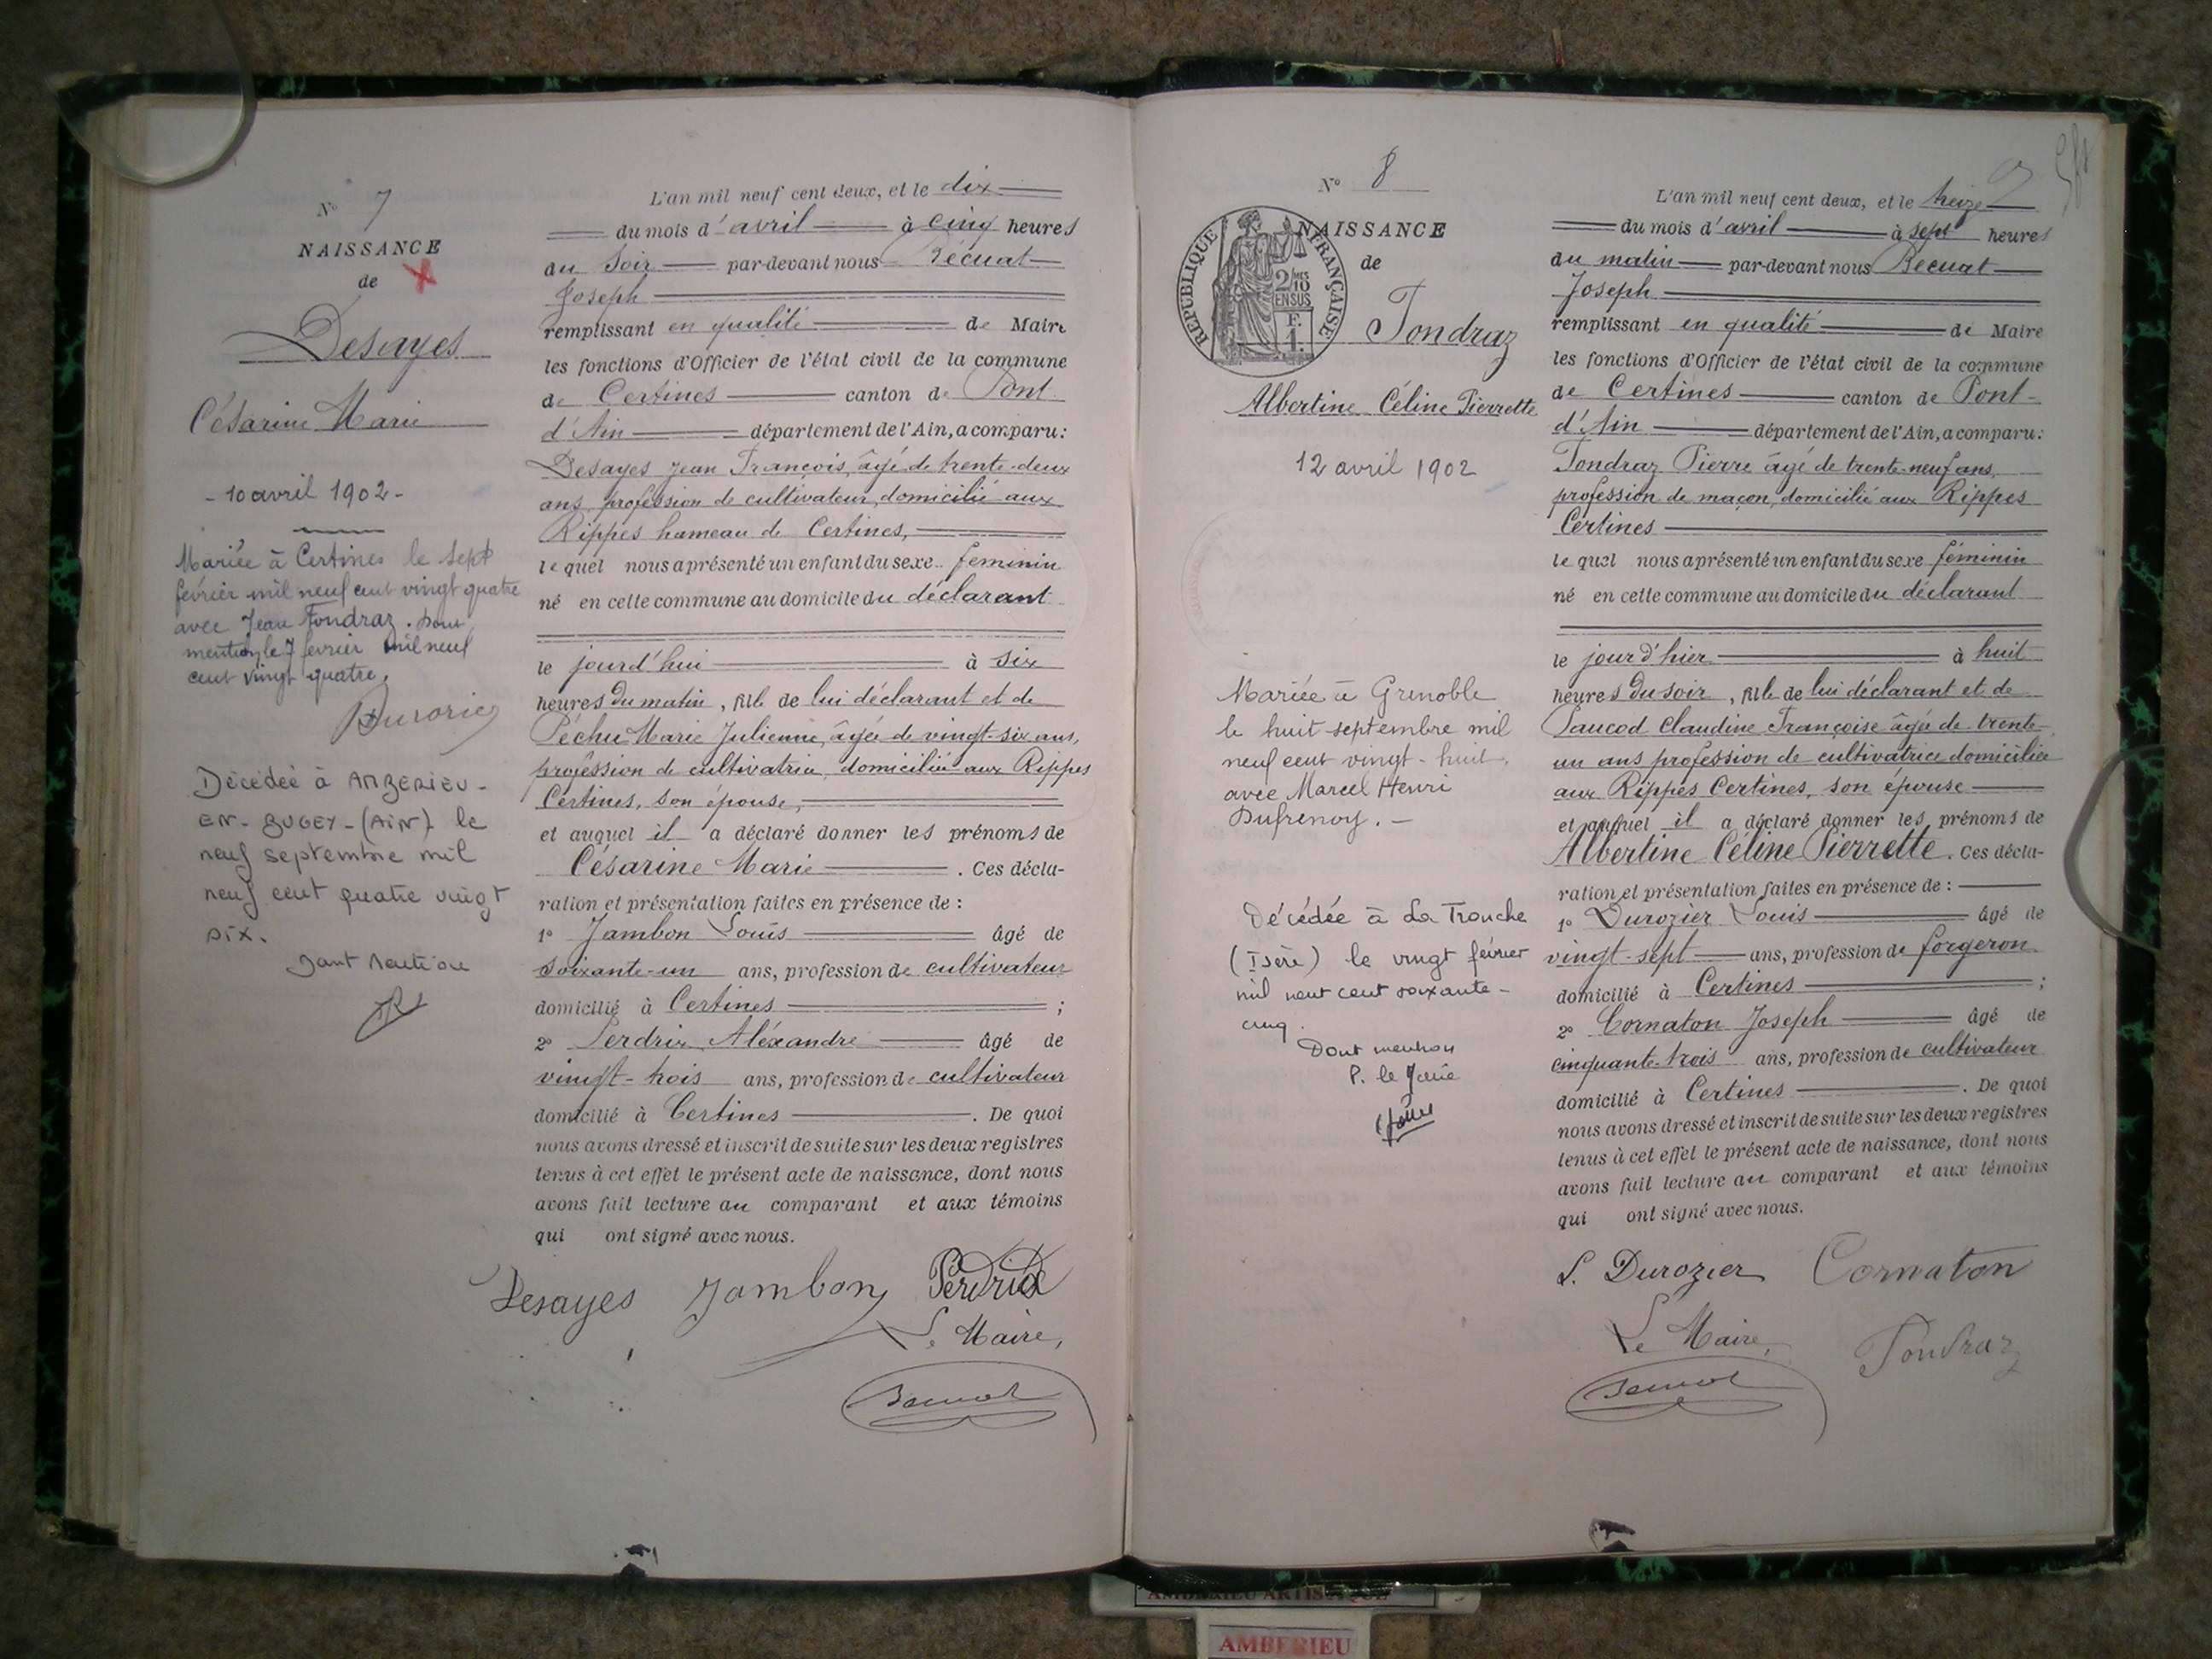 N° 7
NAISSANCE
de
Desayes
Césarine Marie
- 10 avril 1902 -
Mariée à Certines le sept
février mil neuf cent vingt quatre
avec Jean Tondraz. Dont
mention le 7 février mil neuf
cent vingt quatre.
Décédée à AMBERIEU-
EN-BUGEY-(AIN) le
neuf septembre mil
neuf cent quatre vingt
DIX.
Dont Mention
L'an mil neuf cent deux, et le dix
du mois d'avril à cinq heures
du soir par-devant nous Bécuat
Joseph
remplissant en qualité de Maire
les fonctions d'Officier de l'état civil de la commune
de Certines canton de Pont
d'Ain département de l'Ain, a comparu:
Desayes Jean François, âgé de trente-deux
ans, profession de cultivateur, domicilié aux
Rippes hameau de Certines,
lequel nous a présenté un enfant du sexe féminin
né en cette commune au domicile du déclarant
le jourd'hui à six
heures du matin, fille de lui déclarant et de
Péchu Marie Julienne, âgée de vingt-six ans,
profession de cultivatrice, domiciliée aux Rippes
Certines, son épouse,
et auquel il a déclaré donner les prénoms de
Césarine Marie. Ces décla-
ration et présentation faites en présence de :
1° Jambon Louis âgé de
soixante-un ans, profession de cultivateur
domicilié à Certines ;
2° Perdrix Aléxandre âgé de
vingt-trois ans, profession de cultivateur
domicilié à Certines. De quoi
nous avons dressé et inscrit de suite sur les deux registres
tenus à cet effet le présent acte de naissance, dont nous
avons fait lecture au comparant et aux témoins
qui ont signé avec nous.
Desayes Jambon Perdrix
Le Maire,
Bécuat
N° 8
REPUBLIQUE FRANÇAISE
2/10 MES
EN SUS
F.
1.
NAISSANCE
de
Tondraz
Albertine Céline Pierrette
12 avril 1902
Mariée à Grenoble
le huit septembre mil
neuf cent vingt-huit,
avec Marcel Henri
Dufrenoy. -
Décédée à La Tronche
(Isère) le vingt février
mil neuf cent soixante-
cinq.
Dont mention
P. le Maire
L'an mil neuf cent deux, et le treize
du mois d'avril à sept heures
du matin par-devant nous Bécuat
Joseph
remplissant en qualité de Maire
les fonctions d'Officier de l'état civil de la commune
de Certines canton de Pont-
d'Ain département de l'Ain, a comparu:
Tondraz Pierre âgé de trente-neuf ans,
profession de maçon, domicilié aux Rippes
Certines
lequel nous a présenté un enfant du sexe féminin
né en cette commune au domicile du déclarant
le jour d'hier à huit
heures du soir, fille de lui déclarant et de
Paucod Claudine Françoise âgée de trente-
un ans profession de cultivatrice domiciliée
aux Rippes Certines, son épouse
et auquel il a déclaré donner les prénoms de
Albertine Céline Pierrette. Ces décla-
ration et présentation faites en présence de :
1° Durozier Louis âgé de
vingt-sept ans, profession de forgeron
domicilié à Certines ;
2° Cornaton Joseph âgé de
cinquante-trois ans, profession de cultivateur
domicilié à Certines. De quoi
nous avons dressé et inscrit de suite sur les deux registres
tenus à cet effet le présent acte de naissance, dont nous
avons fait lecture au comparant et aux témoins
qui ont signé avec nous.
L. Durozier Cornaton
Le Maire, Tondraz
Bécuat
AMBERIEU ARTISTIQUE
AMBERIEU